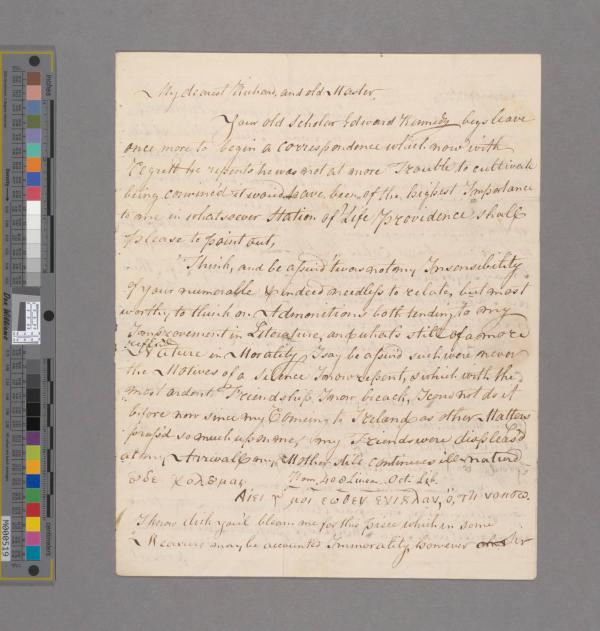 My dearest Richard, and old Master,
Your old Scholar Edward Kennedy begs leave
once more to begin a correspondence which now with
Regrett he repents he was not at more Trouble to cultivate
being convinc'd it would have been of the highest Importance
to me in whatsoever Station of Life Providence shall
please to point out,
Think, and be assur'd 'twas not my Insensibility
of your numerable & indeed needless to relate, but most
worthy to think on Admonitions both tending to my
Improvement in Literature, and what's still of a more
refin'd
Nature in Morality, I say be assur'd such were never
the Motives of a Silence I now repent, & which with the
most ardent Friendship I now breach, I cou'd not do it
before now since my Coming to Ireland as other Matters
press'd so much upon me, my Friends were displeas'd
at my Arrival my Mother still continues ill natur'd
Hom. 408 Linea. Oct. Lib.
Αιει
I know you'd blame me for this piece which in some
Measure may be accounted Immorality, however
inches
centimeters
Don Williams
M000519